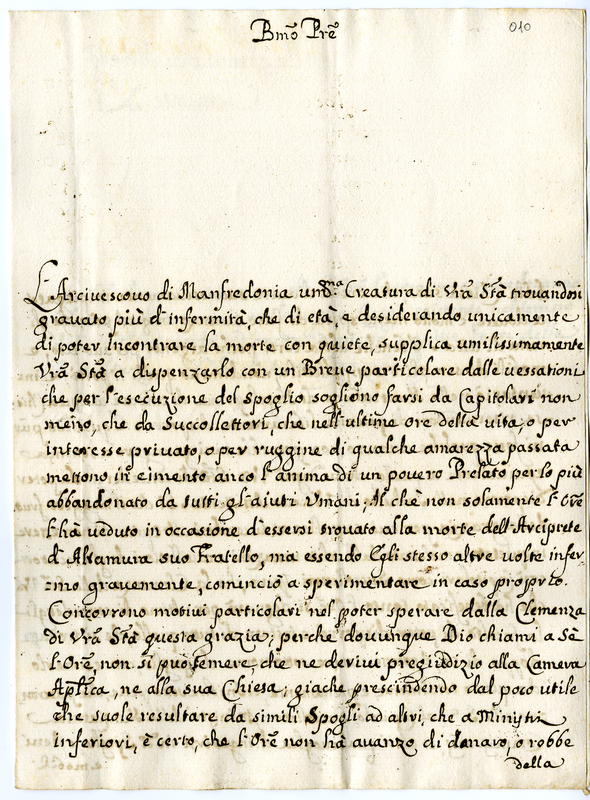 Bmõ Prẽ
010
L'Arciuescouo di Manfredonia umᵐᵃ Creatura di Vrã Stã trouandosi
grauato più d'infermità, che di età, e desiderando unicamente
di poter incontrare la morte con quiete, supplica umilissimamente
Vrã Stã a dispenzarlo con un Breue particolare dalle uessationi
che per l'esecuzione del Spoglio sogliono farsi da Capitolari non
meno, che da Succollettori, che nell'ultime ore della uita, o per
interesse priuato, o per ruggine di qualche amarezza passata
mettono in cimento anco l'anima di un pouero Prelato per lo più
abbandonato da tutti gl'aiuti Vmani; Il che non solamente l'Orẽ
l'hà ueduto in occasione d'essersi trouato alla morte dell'Arciprete
d'Altamura suo Fratello, ma essendo Egli stesso altre uolte infer
=mo grauemente, cominciò a sperimentare in caso proprio.
Concorrono motiui particolari nel poter sperare dalla Clemenza
di Vrã Stã questa grazia; perche douunque Dio chiami a Sè
l'Orẽ, non si può temere, che ne deriui pregiudizio alla Camera
Aplĩca, ne alla sua Chiesa; giache prescindendo dal poco utile
che suole resultare da simili Spogli ad altri, che a Ministri
inferiori, è certo, che l'Orẽ non hà auanzo di danaro, o robbe
della